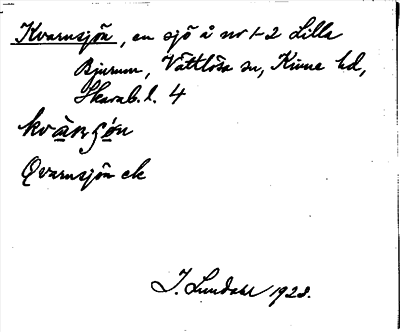 Kvarnsjön, en sjö å nr 1-2 Lilla
Bjurum, Vättlösa sn, Kinne hd,
Skarab. l. 4
kvànʂó̤n
Qvarnsjön ek
J. Lundahl 1928.